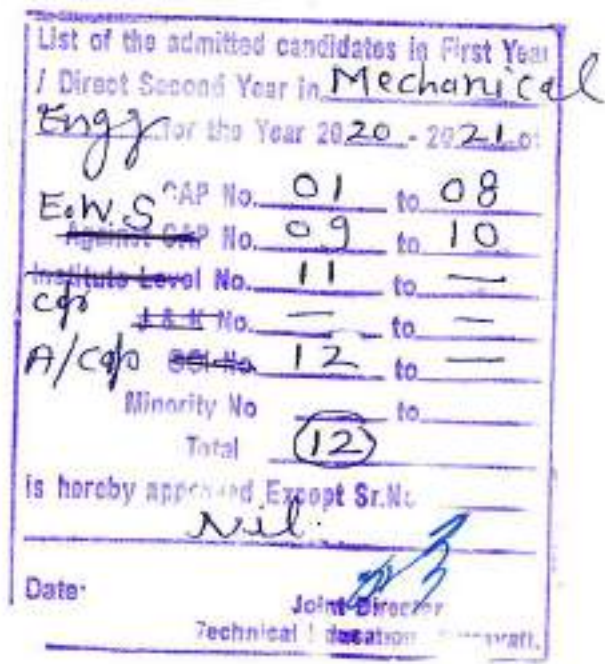 List of the admitted candidates in First Year
/ Direct Second Year in Mechanical
Engg for the Year 2020 - 2021 of
CAP No. 01 to 08
E.W.S Against CAP No. 09 to 10
Institute Level No. 11 to —
cap J & K No. — to —
A/Cap GOI No. 12 to —
Minority No to
Total 12
is hereby approved Except Sr.No
Nil.
Date:
Joint Director
Technical Education